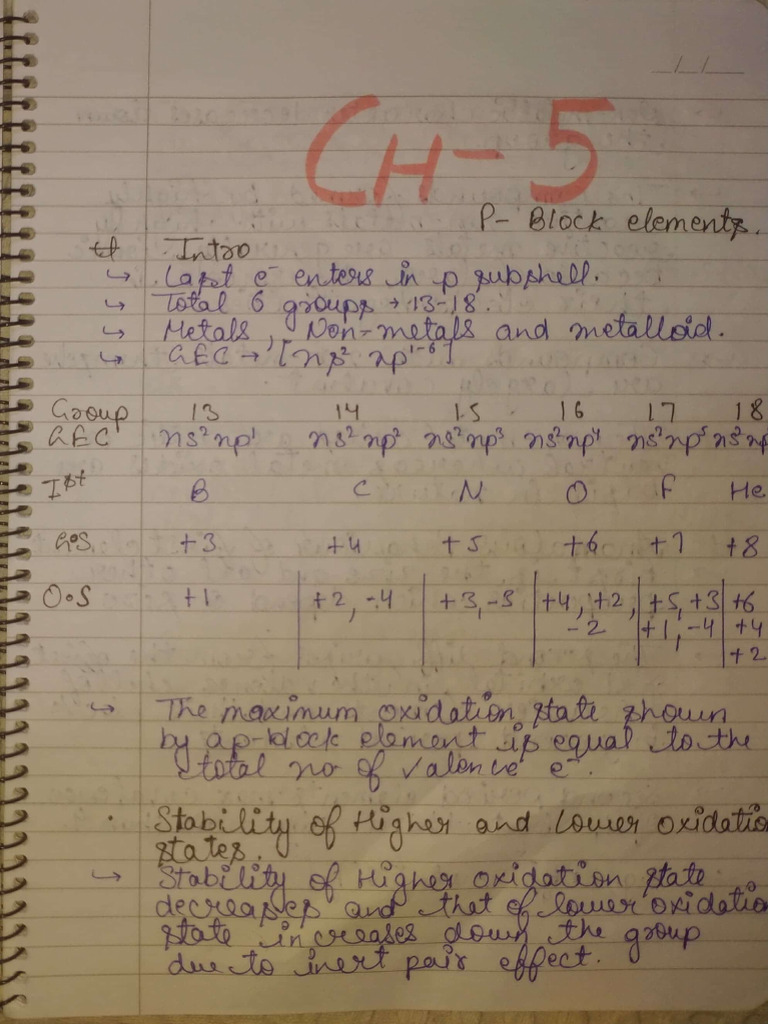 __/__/____
CH-5
P-Block elements.
# Intro
↳ Last e⁻ enters in p subshell.
↳ Total 6 groups → 13-18.
↳ Metals, Non-metals and metalloid.
↳ GEC → [ns² np¹⁻⁶]
Group 13 14 15 16 17 18
GEC ns²np¹ ns²np² ns²np³ ns²np⁴ ns²np⁵ ns²np
Ist B C N O F He
G.S +3 +4 +5 +6 +7 +8
O.S +1 +2, -4 +3, -3 +4, +2, -2 +5, +3 +1, -4 +6 +4 +2
↳ The maximum oxidation state shown
by a p-block element is equal to the
total no of valence e⁻.
· Stability of Higher and Lower oxidatio
states.
↳ Stability of Higher oxidation state
decreases and that of lower oxidation
state increases down the group
due to inert pair effect.